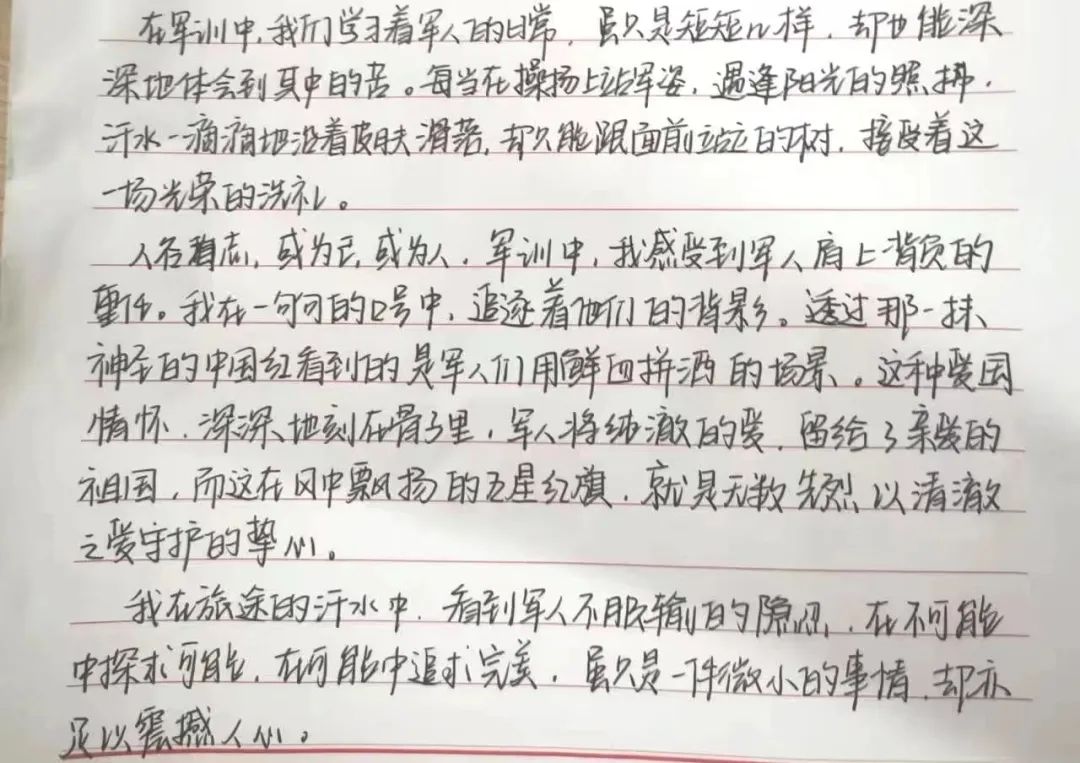 在军训中,我们学习着军人的日常,虽只是短短几样,却也能深
深地体会到其中的苦。每当在操场上站军姿,遇逢阳光的照拂,
汗水一滴滴地沿着皮肤滑落,却只能跟面前站立的树,接受着这
一场光荣的洗礼。
人各有志,或为己,或为人,军训中,我感受到军人肩上背负的
重任。我在一句句的口号中,追逐着他们的背影。透过那一抹
神圣的中国红看到的是军人们用鲜血拼洒的场景。这种爱国
情怀,深深地刻在骨子里,军人将纯澈的爱,留给了亲爱的
祖国,而这在风中飘扬的五星红旗,就是无数先烈以清澈
之爱守护的挚心。
我在旅途的汗水中,看到军人不服输的隐忍,在不可能
中探求可能,在可能中追求完美,虽只是一件微小的事情,却亦
足以震撼人心。